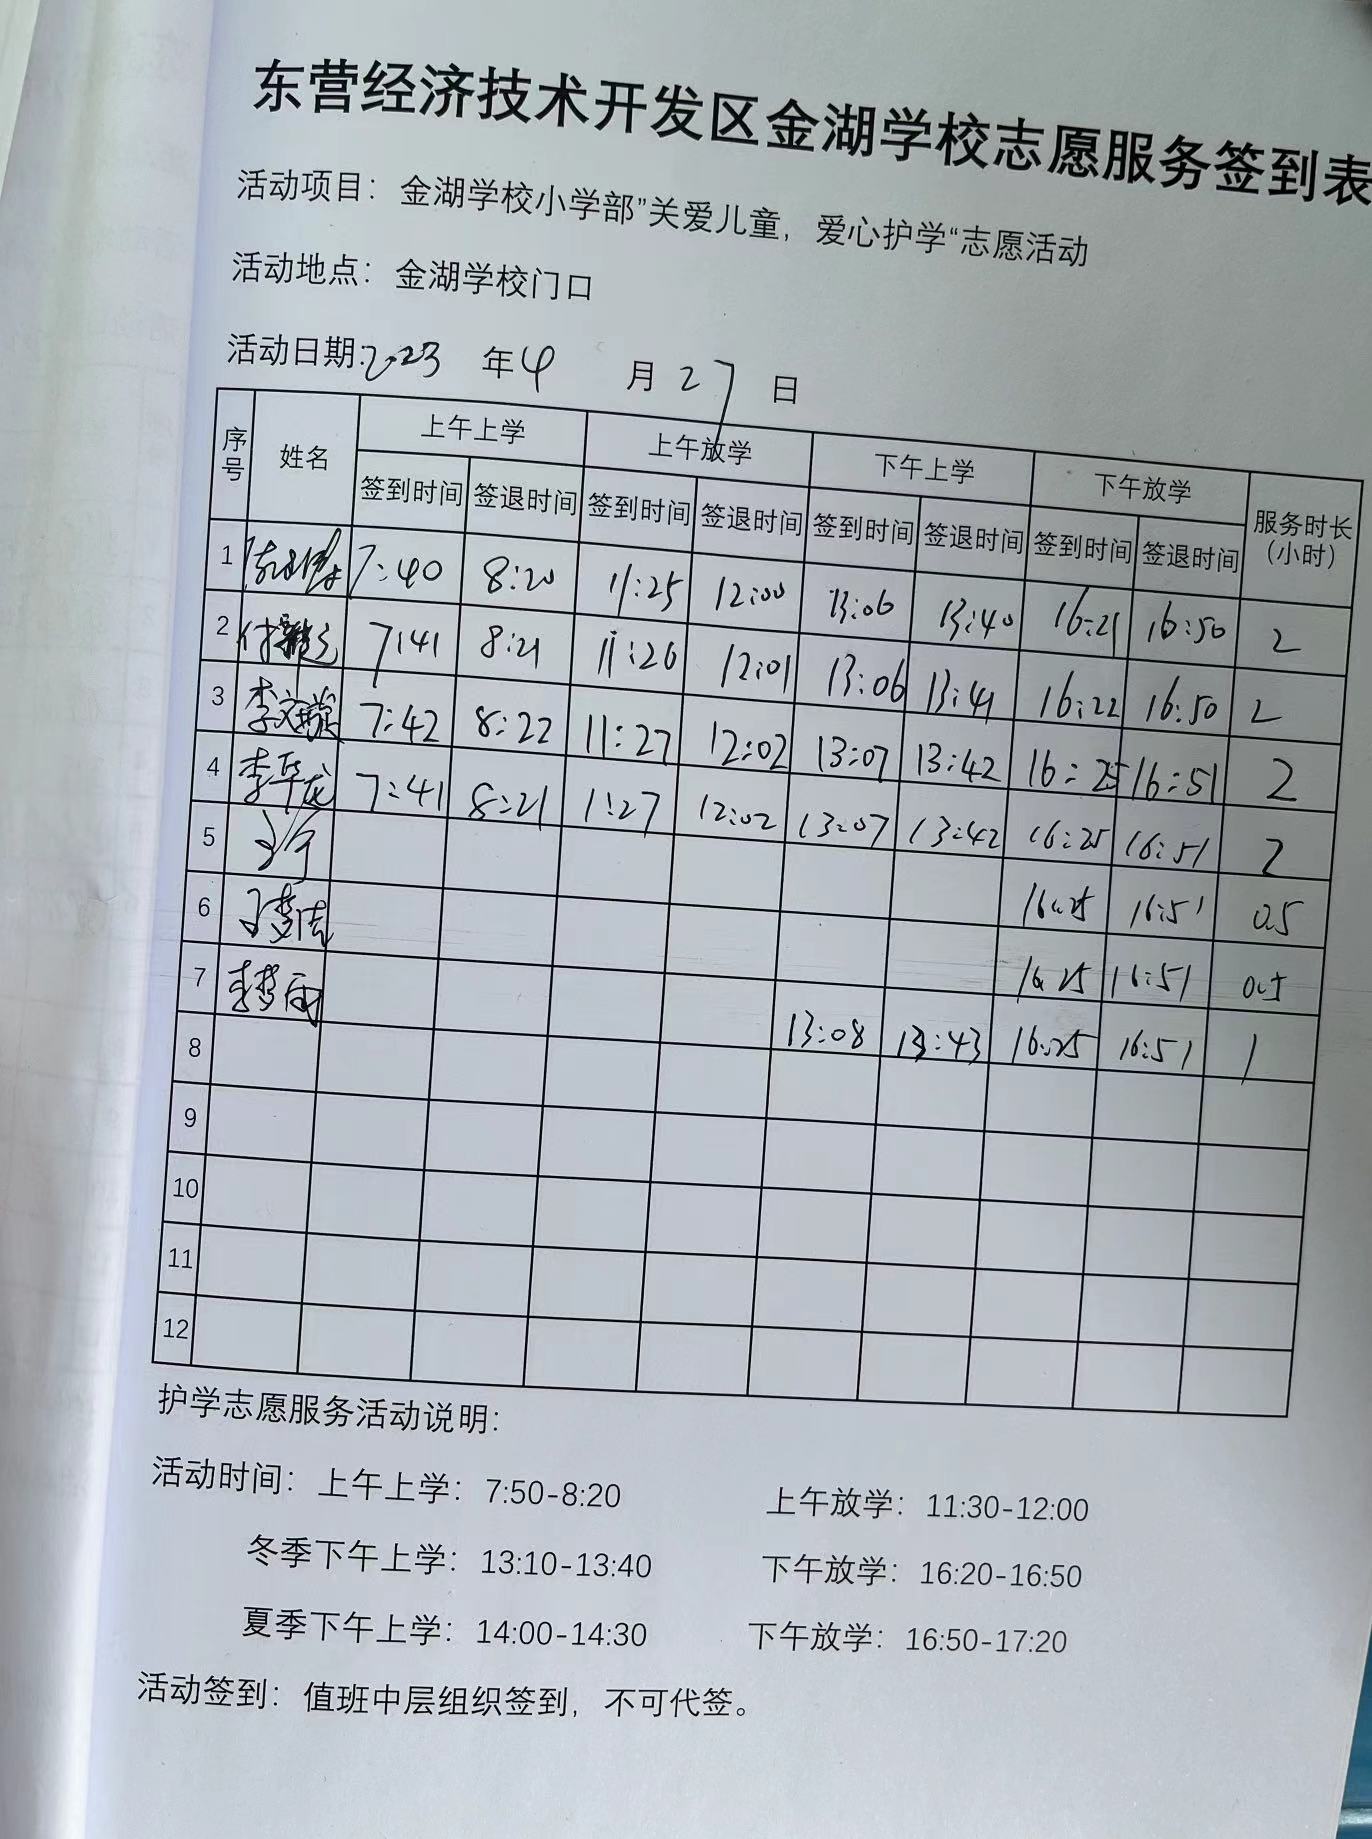 东营经济技术开发区金湖学校志愿服务签到表
活动项目：金湖学校小学部"关爱儿童，爱心护学"志愿活动
活动地点：金湖学校门口
活动日期：2023 年 4 月 27 日
序号 姓名 上午上学 上午放学 下午上学 下午放学 服务时长（小时）
签到时间 签退时间 签到时间 签退时间 签到时间 签退时间 签到时间 签退时间
1 7:40 8:20 11:25 12:00 13:06 13:40 16:21 16:50 2
2 7:41 8:21 11:26 12:01 13:06 13:41 16:22 16:50 2
3 7:42 8:22 11:27 12:02 13:07 13:42 16:25 16:51 2
4 李华龙 7:41 8:21 1:27 12:02 13:07 13:42 16:25 16:51 2
5 16:25 16:51 0.5
6 16:25 16:51 0.5
7 李梦雨 13:08 13:43 16:25 16:51 1
8
9
10
11
12
护学志愿服务活动说明：
活动时间：上午上学：7:50-8:20 上午放学：11:30-12:00
冬季下午上学：13:10-13:40 下午放学：16:20-16:50
夏季下午上学：14:00-14:30 下午放学：16:50-17:20
活动签到：值班中层组织签到，不可代签。